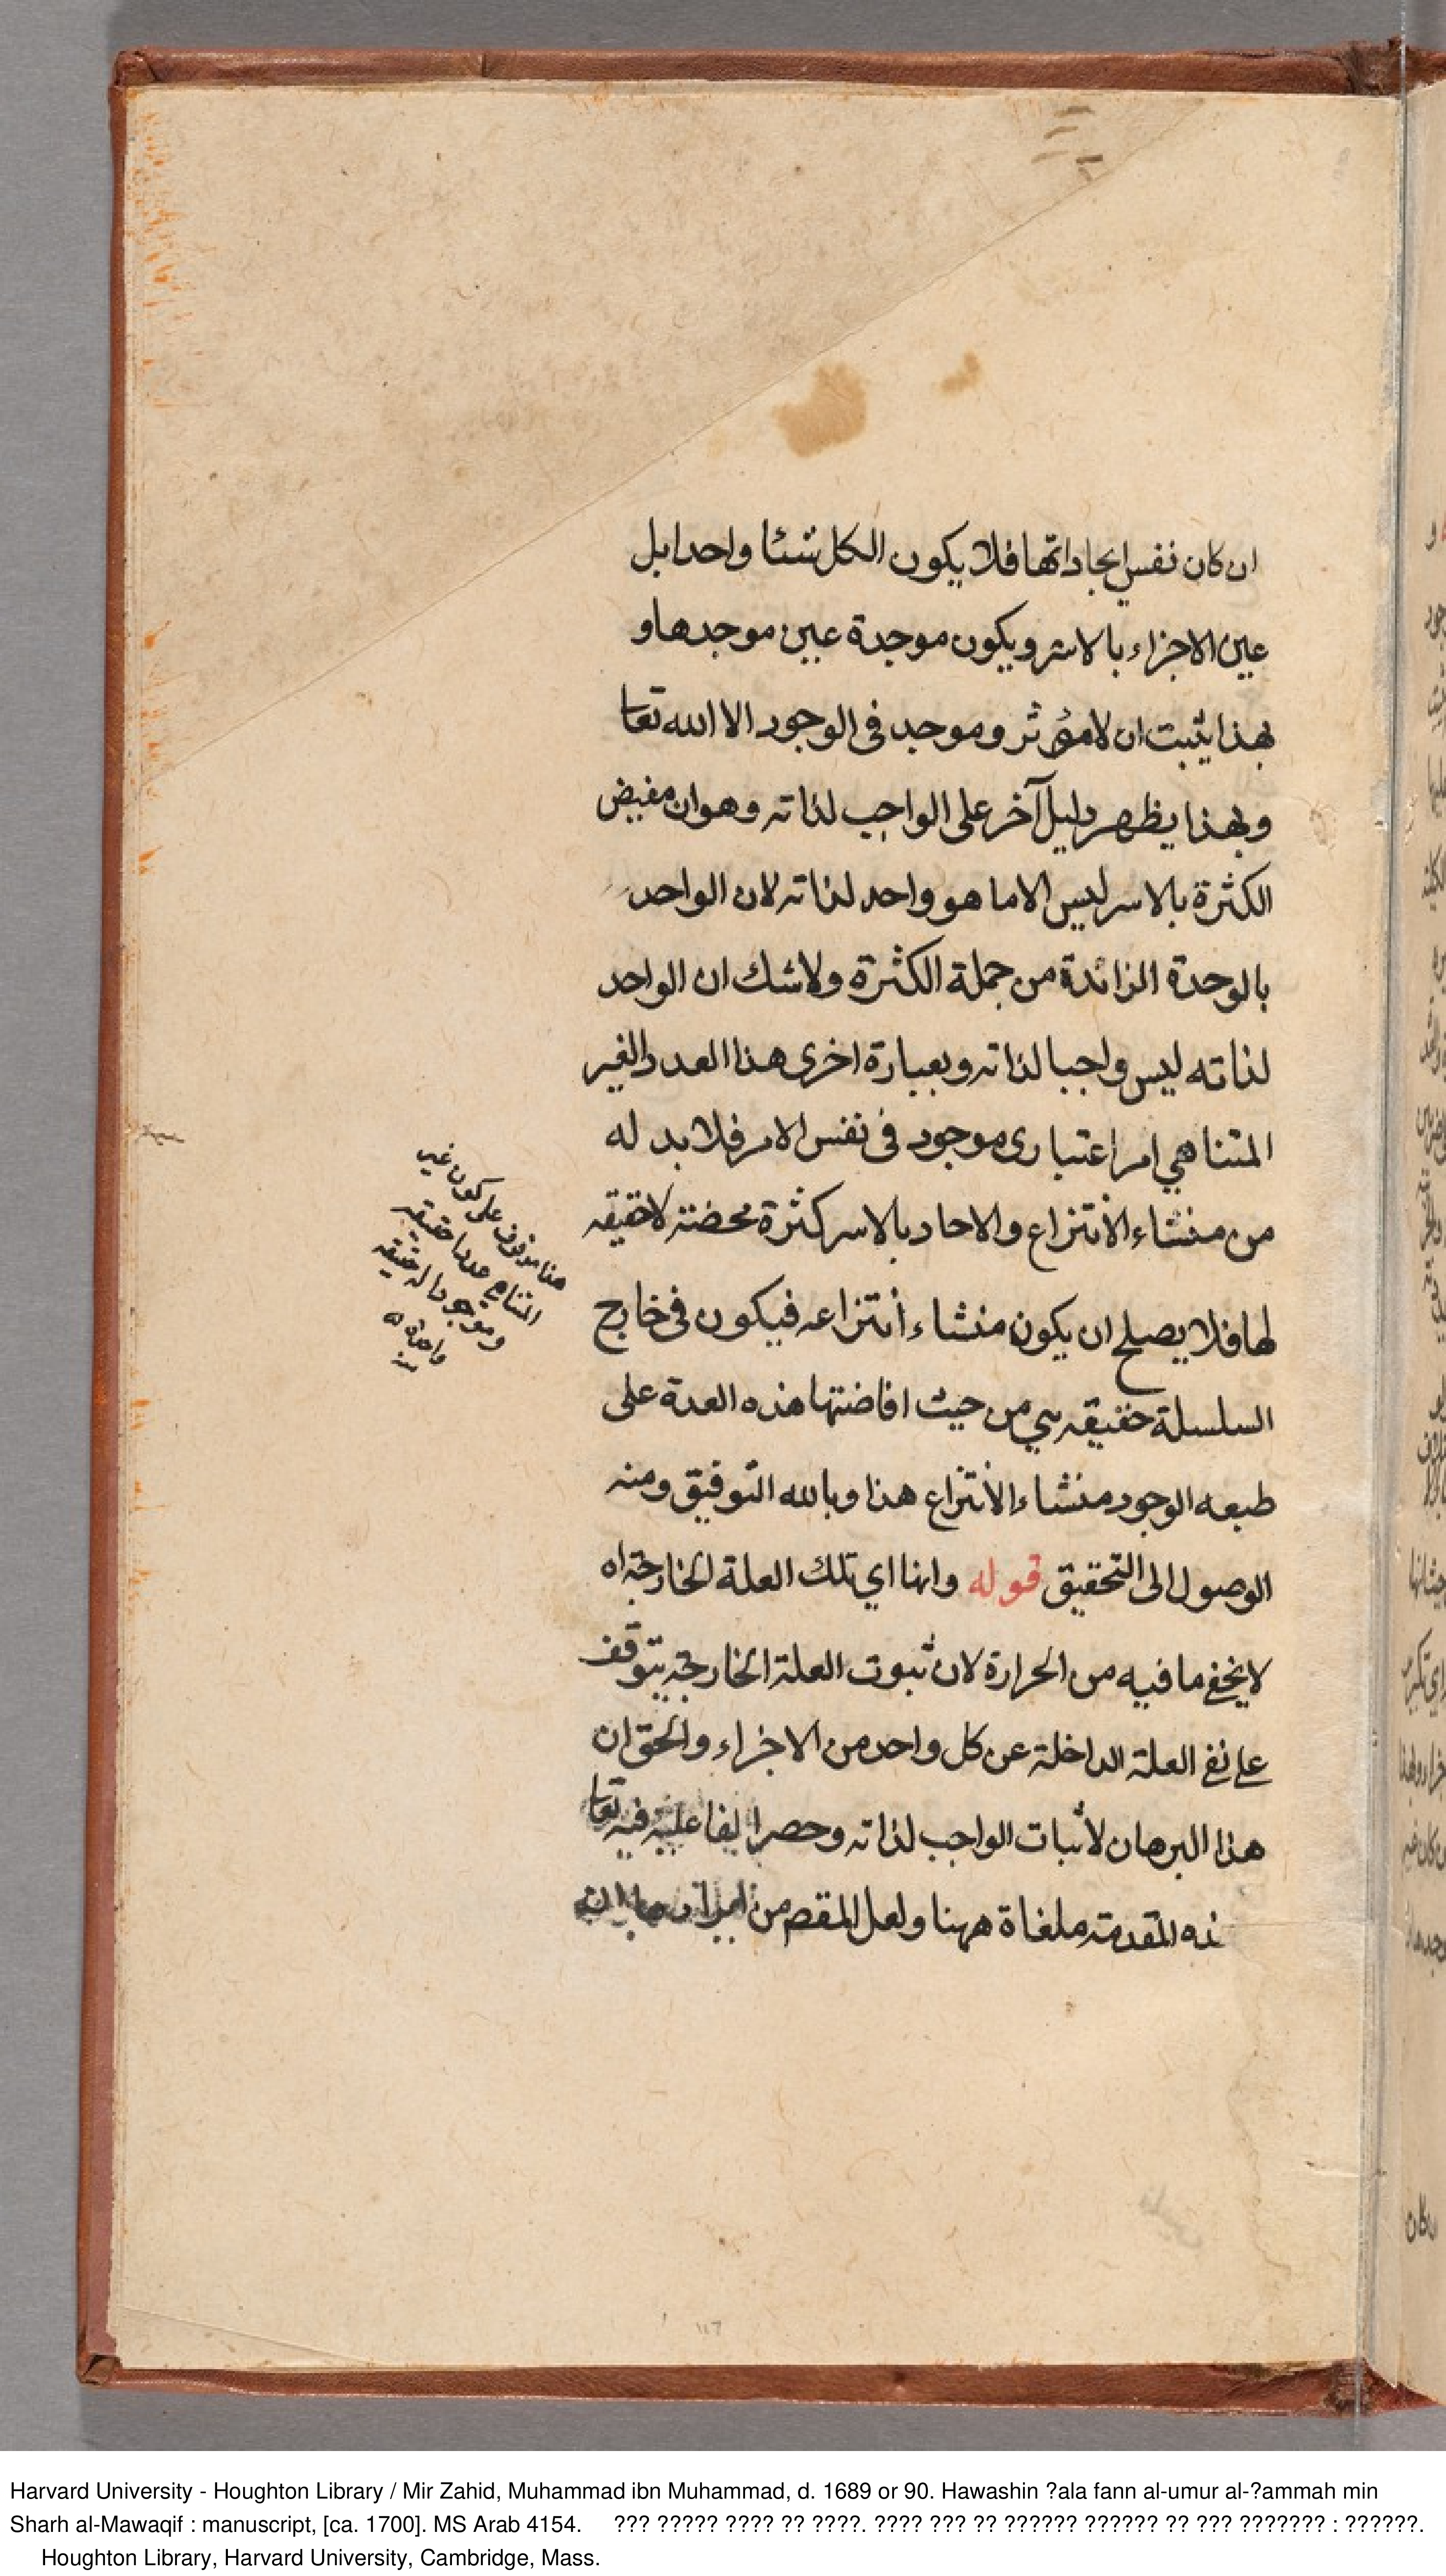 ان كان نفس ايجاداتها فلا يكون الكل شئا واحدا بل
عين الاجزاء بالاسر ويكون موجدة عين موجدها و
بهذا يثبت ان لا مؤثر وموجد فى الوجود الا الله تعا
وبهذا يظهر دليل آخر على الواجب لذاته وهو ان مفيض
الكثرة بالاسر ليس الا ما هو واحد لذاته لان الواحد
بالوحدة الزائدة من جملة الكثرة ولا شك ان الواحد
لذاته ليس واجبا لذاته وبعبارة اخرى هذا العدد الغير
المتناهي امر اعتبارى موجود فى نفس الامر فلا بد له
من منشاء الانتزاع والاحاد بالاسر كثرة محضة لا حقيقه
لها فلا يصلح ان يكون منشاء أنتزاعه فيكون فى خارج
السلسلة حقيقه هي من حيث افاضتها هذه العدة على
طبعه الوجود منشاء الأنتزاع هذا وبالله التوفيق ومنه
الوصول الى التحقيق قوله وانها اي تلك العلة الخارجة اه
لا يخفى ما فيه من الحرارة لان ثبوت العلة الخارجة يتوقف
على نفى العلة الداخلة عن كل واحد من الاجزاء والحق ان
هذا البرهان لاثبات الواجب لذاته وحصر الفاعلية فيه تعا
المقدمة ملغاة ههنا ولعل المقصم من
هذا موقوف على كون غير
المتناهي عددا حقيقه
وموجودا له حقيقه
واحدة
منه
ان كان
Harvard University - Houghton Library / Mir Zahid, Muhammad ibn Muhammad, d. 1689 or 90. Hawashin ?ala fann al-umur al-?ammah min
Sharh al-Mawaqif : manuscript, [ca. 1700]. MS Arab 4154. ??? ????? ???? ?? ????. ???? ??? ?? ?????? ?????? ?? ??? ??????? : ??????.
Houghton Library, Harvard University, Cambridge, Mass.